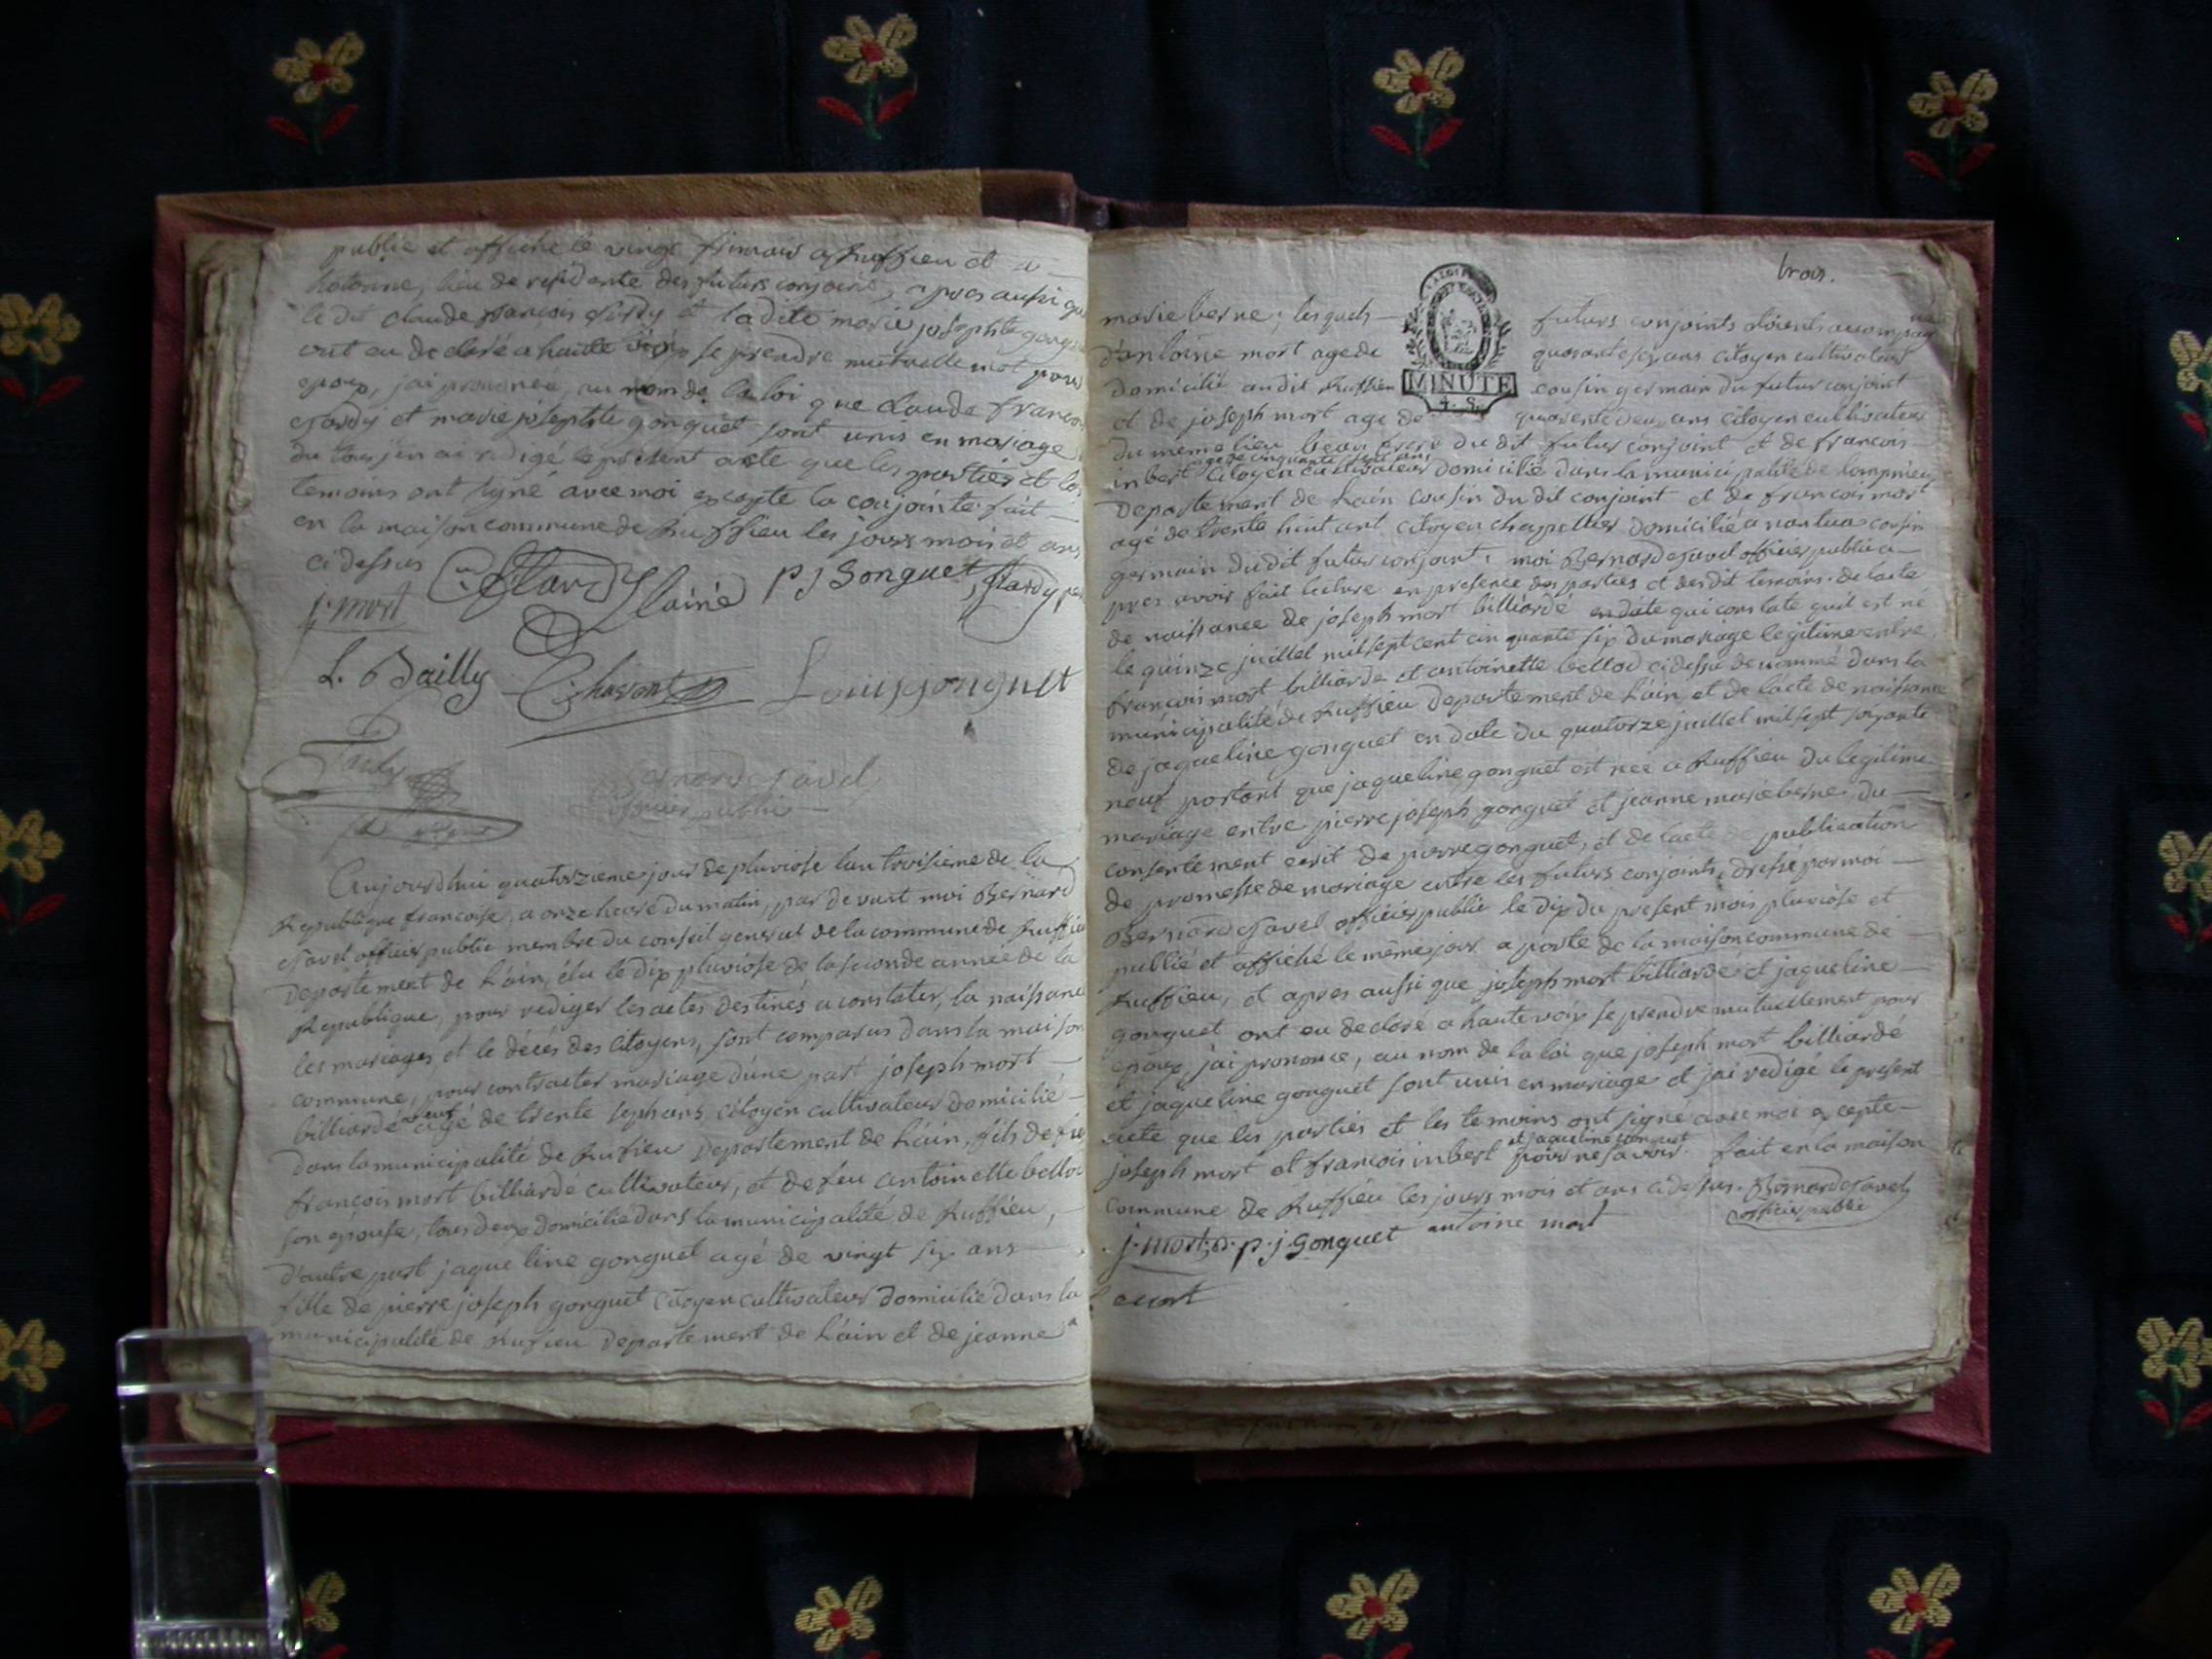 publié et affiché le vingt frimais a Ruffieu et a
hotonne, lieu de residente des futurs conjoins, apres aussi que
le dit claude françois Jardy et la dite marie josephte gonguet
ont eu declaré a haute voix se prendre mutuellement pour
epoux, jai prononcé, au nom de la loi que claude françois
Jardy et marie josephte gonguet sont unis en mariage
du tous jen ai redigé le present acte que les parties et les
temoins ont signé avec moi excepte la conjointe fait
en la maison commune de Ruffieu les jours mois et ans
ci dessus
j. mort P J Gonguet
L. Bailly Louis gonguet
Bernard Savel
officier public
Aujourdhui quatorzieme jour de pluviose lan troisieme de la
Republique francoise, a onze heure du matin, par devant moi Bernard
Savel officier public membre du conseil general de la commune de Ruffieu
Departement de Lain, élu le dix pluviose de la seconde année de la
Republique, pour rediger les actes destinés a constater, la naissance
les mariages, et le décés des citoyens, sont comparus dans la maison
commune, pour contracter mariage dune part joseph mort
billiardé agé de trente sept ans citoyen cultivateur domicilié
dans la municipalité de Rufieu Departement de Lain, fils de feu
françois mort billiardé cultivateur, et de feu antoinette bellod
son epouse, tous deux domicilié dans la municipalité de Ruffieu,
d'autre part jaqueline gonguet agé de vingt six ans
fille de pierre joseph gonguet citoyen cultivateur domicilié dans la
municipalité de Rufieu Departement de Lain et de jeanne
trois.
marie berne; lesquels futurs conjoints étoient accompag
né
d'antoine mort age de quarante six ans citoyen cultivateur
domicilié audit Ruffieu cousin germain du futur conjoint
MINUTE
4. S.
et de joseph mort age de quarente deux ans citoyen cultivateur
du meme lieu beau frere du dit futur conjoint et de francois
inbert citoyen cultivateur domicilié dans la municipalité de lompnieu
departement de Lain cousin du dit conjoint et de francois mort
agé de trente huit ant citoyen chapellier domicilié a nantua cousin
germain du dit futur conjoint; moi Bernard Savel officier public a-
pres avoir fait lecture en presence des parties et des dit temoins. de lacte
de naissance de joseph mort billiardé en date qui constate quil est né
le quinze juillet mil sept cent cinquante six du mariage legitime entre
françois mort billiardé et antoinette bellod ci dessu denommé dans la
municipalité de Ruffieu Departement de Lain, et de lacte de naissance
de jaqueline gonguet en date du quatorze juillet mil sept soixante
neuf portant que jaqueline gonguet est née a Ruffieu du legitime
mariage entre pierre joseph gonguet et jeanne marie berne. du
consentement ecrit de pierre gonguet, et de lacte de publication
de promesse de mariage entre les futurs conjoints, dressé par moi
Bernard Savel officier public le dix du present mois pluviose et
publié et affiché le même jour a porte de la maison commune de
Ruffieu, et apres aussi que joseph mort billiardé et jaqueline
gonguet ont eu declaré a haute voix se prendre mutuellement pour
epoux, jai prononcé, au nom de la loi que joseph mort billiardé
et jaqueline gonguet sont unis en mariage et jai redigé le present
acte que les parties et les temoins ont signé avec moi excepte
et jaqueline gonguet
joseph mort et françois inbert pour ne savoir. fait en la maison
commune de Ruffieu les jours mois et ans ci dessus. Bernard Savel
officier public
j. mort p. j. gonguet antoine mort